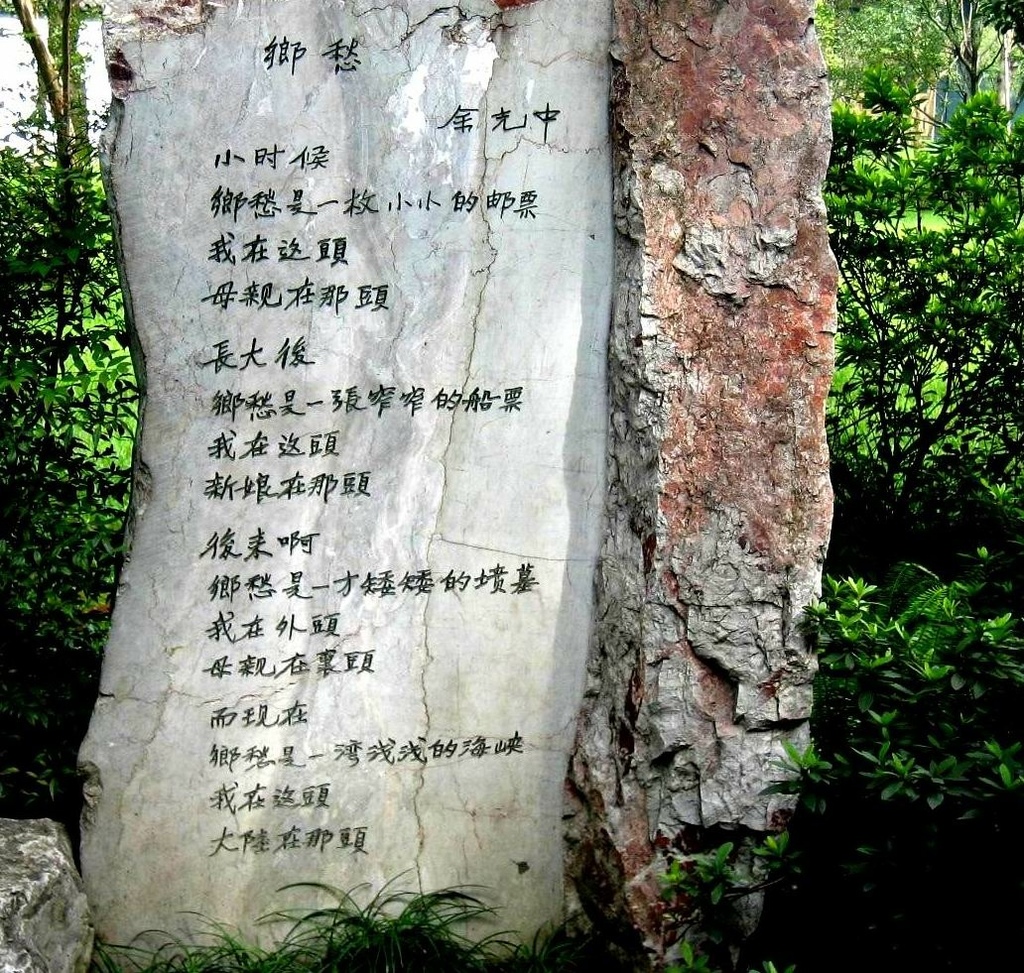 鄉愁
余光中
小时候
鄉愁是一枚小小的邮票
我在这頭
母亲在那頭
長大後
鄉愁是一張窄窄的船票
我在这頭
新娘在那頭
後来啊
鄉愁是一方矮矮的坟墓
我在外頭
母亲在裏頭
而现在
鄉愁是一湾浅浅的海峡
我在这頭
大陸在那頭